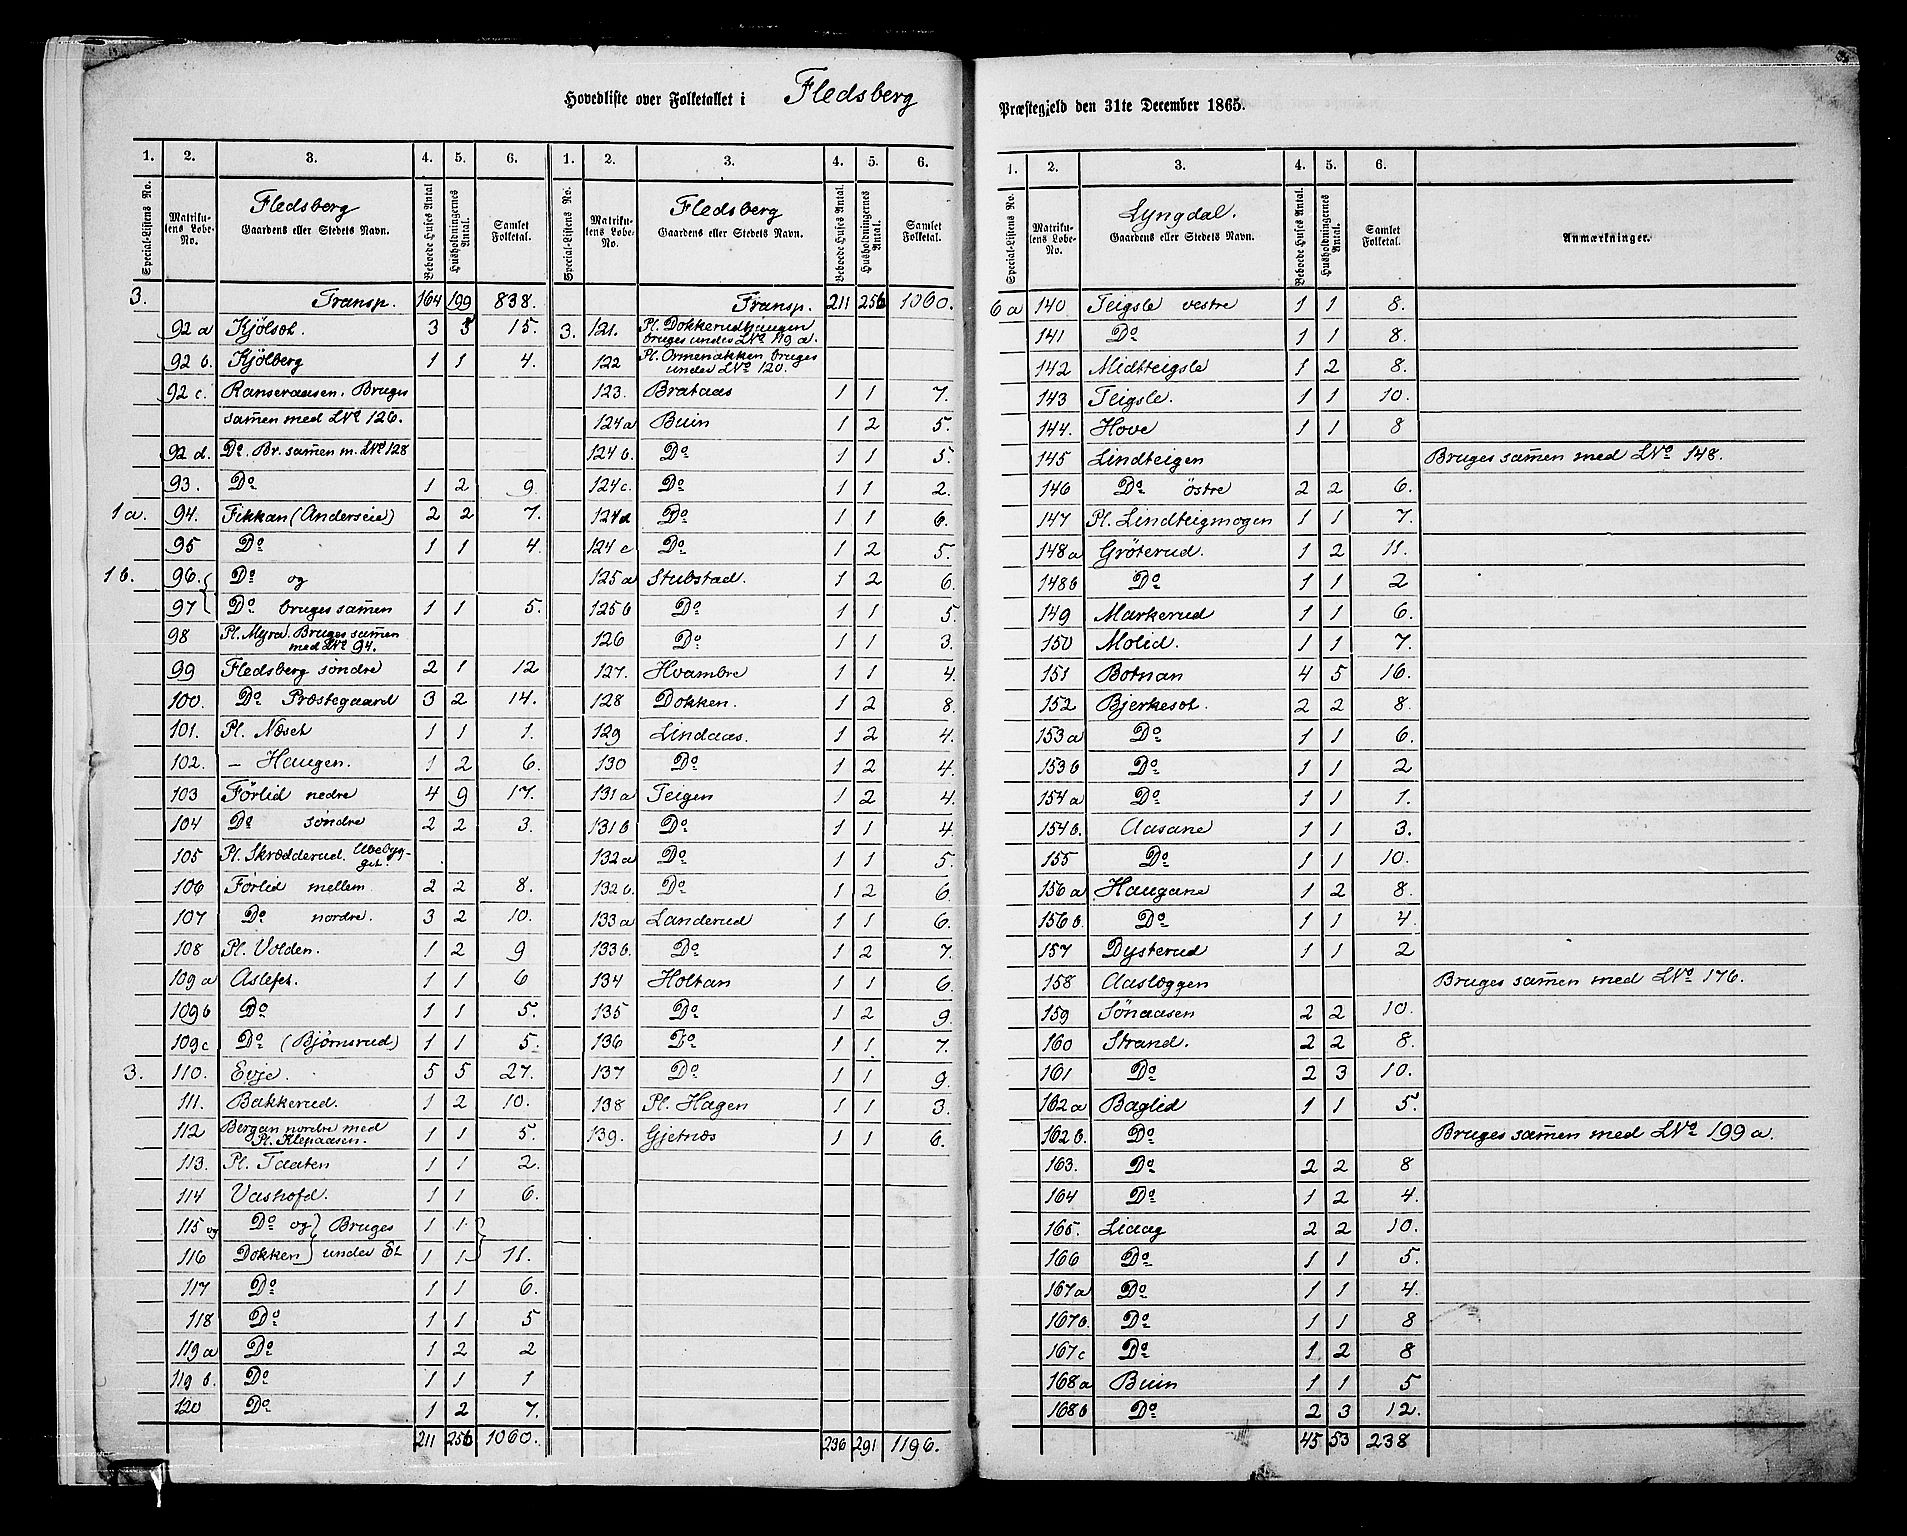 Hovedliste over Folketallet i Fledsberg Præstegjeld den 31te December 1865.
1. 2. 3. 4. 5. 6. 1. 2. 3. 4. 5. 6.
Special-Listens No. Matrikulens Løbe-No. Fledsberg Gaardens eller Stedets Navn. Beboede Huses Antal Husholdningernes Antal. Samlet Folketal.
3. Transp. 164 199 838.
92 a Kjölset. 3 3 15.
92 b. Kjölberg 1 1 4.
92 c. Ranseraasen. Bruges
samen med LNo 126.
92 d. Do. Br. samen m. LNo 128
93. Do 1 2 9.
1 a. 94. Fikkan (Anderseie) 2 2 7.
95 Do 1 1 4.
1 b. 96. Do og
97 Do bruges samen 1 1 5.
98 Pl. Myra. Bruges samen
med LNo 94.
99 Fledsberg söndre 2 1 12
100. Do Præstegaard 3 2 14.
101. Pl. Næset 1 1 1.
102. – Haugen. 1 2 6.
103 Førlid nedre 4 9 17.
104 Do söndre 2 2 3.
105 Pl. Skrædderud. Ubebyg-
get.
106 Førlid mellem 2 2 8.
107 Do nordre. 3 2 10.
108 Pl. Volden. 1 2 9
109 a Aslefet. 1 1 6
109 b Do 1 1 5.
109 c Do (Bjørnsrud) 1 1 5.
3. 110. Evje. 5 5 27.
111. Bakkerud. 1 2 10.
112 Bergan nordre med
Pl. Klepaasen. 1 1 5.
113. Pl. Taaten 1 1 2.
114 Vashofd. 1 1 6.
115 og Do og Bruges 1 1
116 Dokken under Et 1 1 11.
117 Do 1 1 6.
118 Do 1 1 5
119 a Do 1 2 2
119 b. Do 1 1 1
120 Do 1 2 7.
211 256 1060.
Special-Listens No. Matrikulens Løbe-No. Fledsberg Gaardens eller Stedets Navn. Beboede Huses Antal. Husholdningernes Antal. Samlet Folketal.
Transp. 211 256 1060.
3. 121. Pl. Dokkerudhaugen
bruges under LNo 119 a.
122 Pl. Ormenækken bruges
under LNo 120.
123. Brataas 1 1 7.
124 a Buin 1 2 5.
124 b. Do 1 1 5.
124 c. Do 1 1 2.
124 d Do 1 1 6.
124 e Do 1 2 5.
125 a Stubstad. 1 2 6.
125 b Do 1 1 5.
126 Do 1 1 3.
127. Hvambre 1 1 4.
128 Dokken. 1 2 8.
129 Lindaas. 1 2 4.
130 Do 1 2 4.
131 a Teigen 1 2 4.
131 b Do 1 1 4.
132 a Do 1 1 5.
132 b. Do 1 2 6.
133 a Landerud 1 1 6.
133 b. Do 1 2 7.
134 Holtan 1 1 6.
135 Do 1 2 9.
136 Do 1 1 7.
137 Do 1 1 9.
138 Pl. Hagen 1 1 3.
139. Gjetnæs 1 1 6.
236 291 1196.
1. 2. 3. 4. 5. 6.
Special-Listens No. Matrikulens Løbe-No. Lyngdal. Gaardens eller Stedets Navn. Beboede Huses Antal. Husholdningernes Antal. Samlet Folketal. Anmærkninger.
6 a 140 Teigsle vestre 1 1 8.
141 Do 1 1 8.
142 Midtteigsle 1 2 8.
143 Teigsle. 1 1 10.
144. Hove 1 1 8
145 Lindteigen Bruges samen med LNo 148.
146 Do östre 2 2 6.
147 Pl. Lindteigmogen 1 1 7.
148 a Gröterud. 1 2 11.
148 b Do 1 1 2
149 Markerud 1 1 6.
150 Molid. 1 1 7.
151 Botnan 4 5 16.
152 Bjerkeset. 2 2 8.
153 a Do 1 1 6.
153 b Do 1 1 2
154 a Do 1 1 1.
154 b. Aasane 1 1 3.
155 Do 1 1 10.
156 a Haugane 1 2 8.
156 b. Do 1 1 4.
157 Dysterud 1 1 2
158 Aaslæggen Bruges samen med LNo 176.
159 Sönaasen 2 2 10.
160 Strand. 2 2 8.
161 Do 2 3 10.
162 a Baglid 1 1 5.
162 b. Do Bruges samen med LNo 199 a.
163. Do 2 2 8
164 Do 1 2 4.
165. Lidag 2 2 10.
166 Do 1 1 5.
167 a Do 1 1 4.
167 b. Do 1 1 8
167 c Do 1 2 8
168 a Buin 1 1 5
168 b Do 2 3 12.
45 53 238